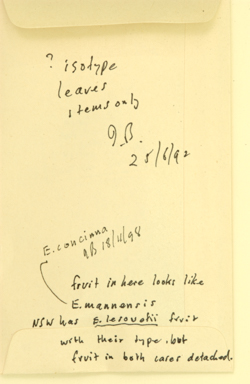 ? isotype
leaves
stems only
J.B.
25/6/92
E. concinna
JB 18/11/98
fruit in here looks like
E. mannensis
NSW has E. lesouefii fruit
with their type, but
fruit in both cases detached.